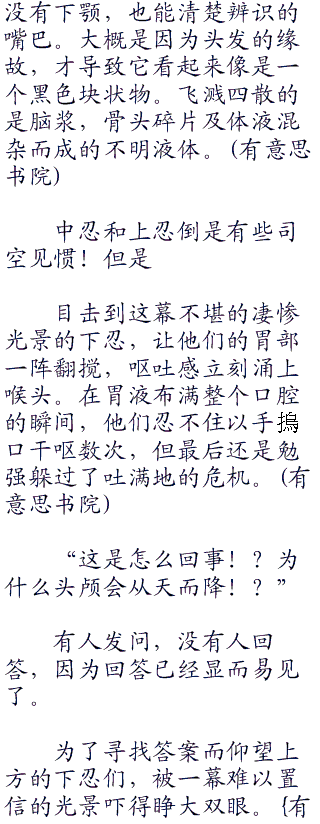 没有下颚，也能清楚辨识的
嘴巴。大概是因为头发的缘
故，才导致它看起来像是一
个黑色块状物。飞溅四散的
是脑浆，骨头碎片及体液混
杂而成的不明液体。(有意思
书院)
中忍和上忍倒是有些司
空见惯！但是
目击到这幕不堪的凄惨
光景的下忍，让他们的胃部
一阵翻搅，呕吐感立刻涌上
喉头。在胃液布满整个口腔
的瞬间，他们忍不住以手摀
口干呕数次，但最后还是勉
强躲过了吐满地的危机。(有
意思书院)
“这是怎么回事！？为
什么头颅会从天而降！？”
有人发问，没有人回
答，因为回答已经显而易见
了。
为了寻找答案而仰望上
方的下忍们，被一幕难以置
信的光景吓得睁大双眼。{有